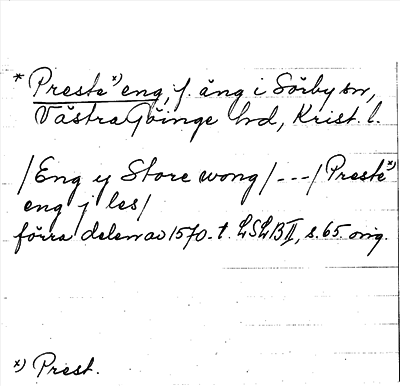 * Preste *) eng, f. äng i Sörby sn,
Västra Göinge hd, Krist. l.
/Eng y Store wong/ --- /Preste *)
eng j les/
förra delen av 1570-t. LSLB II, s. 65 orig.
*) Prest.